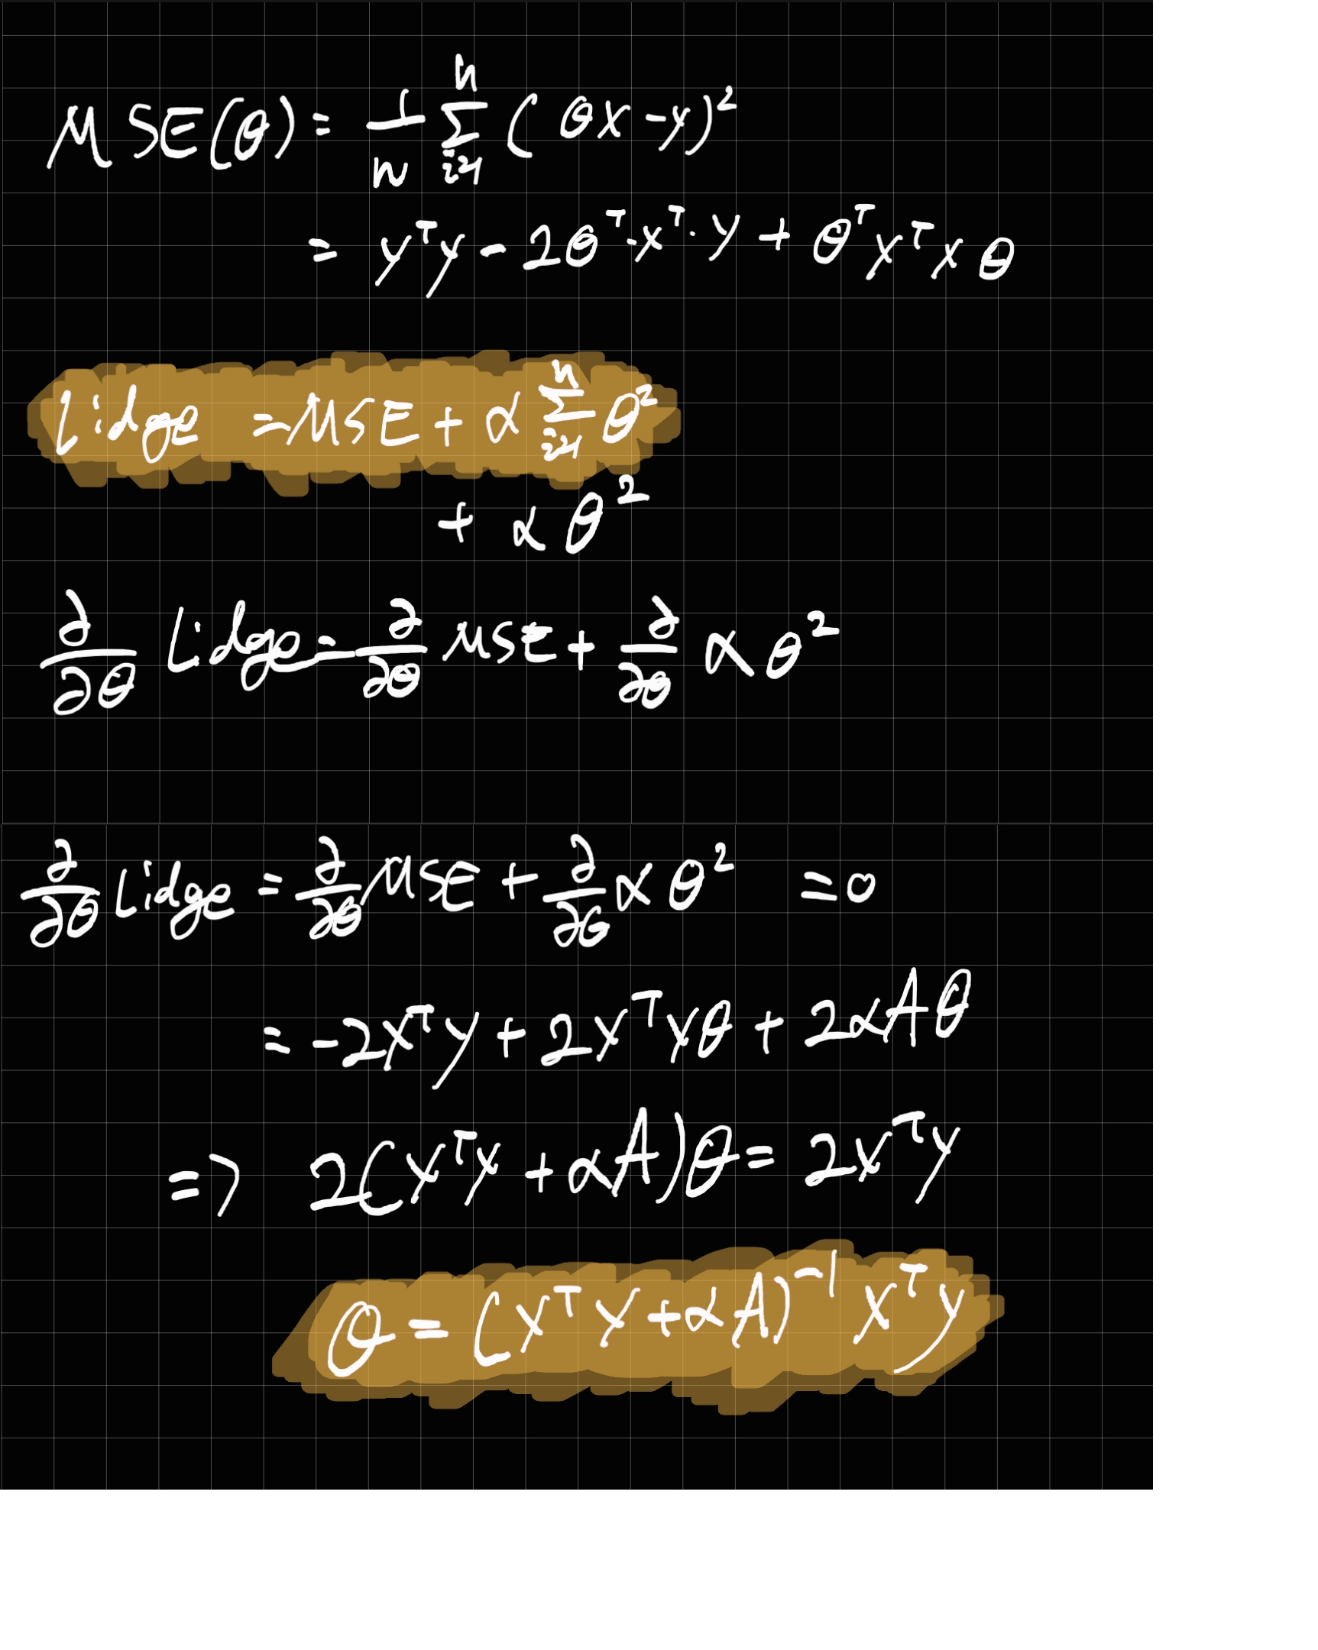 MSE(θ) = 1/n Σ_{i=1}^{n} (θx - y)²
= yᵀy - 2θᵀ·xᵀ·y + θᵀxᵀxθ
Lidge = MSE + α Σ_{i=1}^{n} θ²
+ αθ²
∂/∂θ Lidge = ∂/∂θ MSE + ∂/∂θ αθ²
∂/∂θ Lidge = ∂/∂θ MSE + ∂/∂θ αθ² = 0
= -2xᵀy + 2xᵀxθ + 2αAθ
=> 2(xᵀx + αA)θ = 2xᵀy
θ = (xᵀx + αA)⁻¹ xᵀy